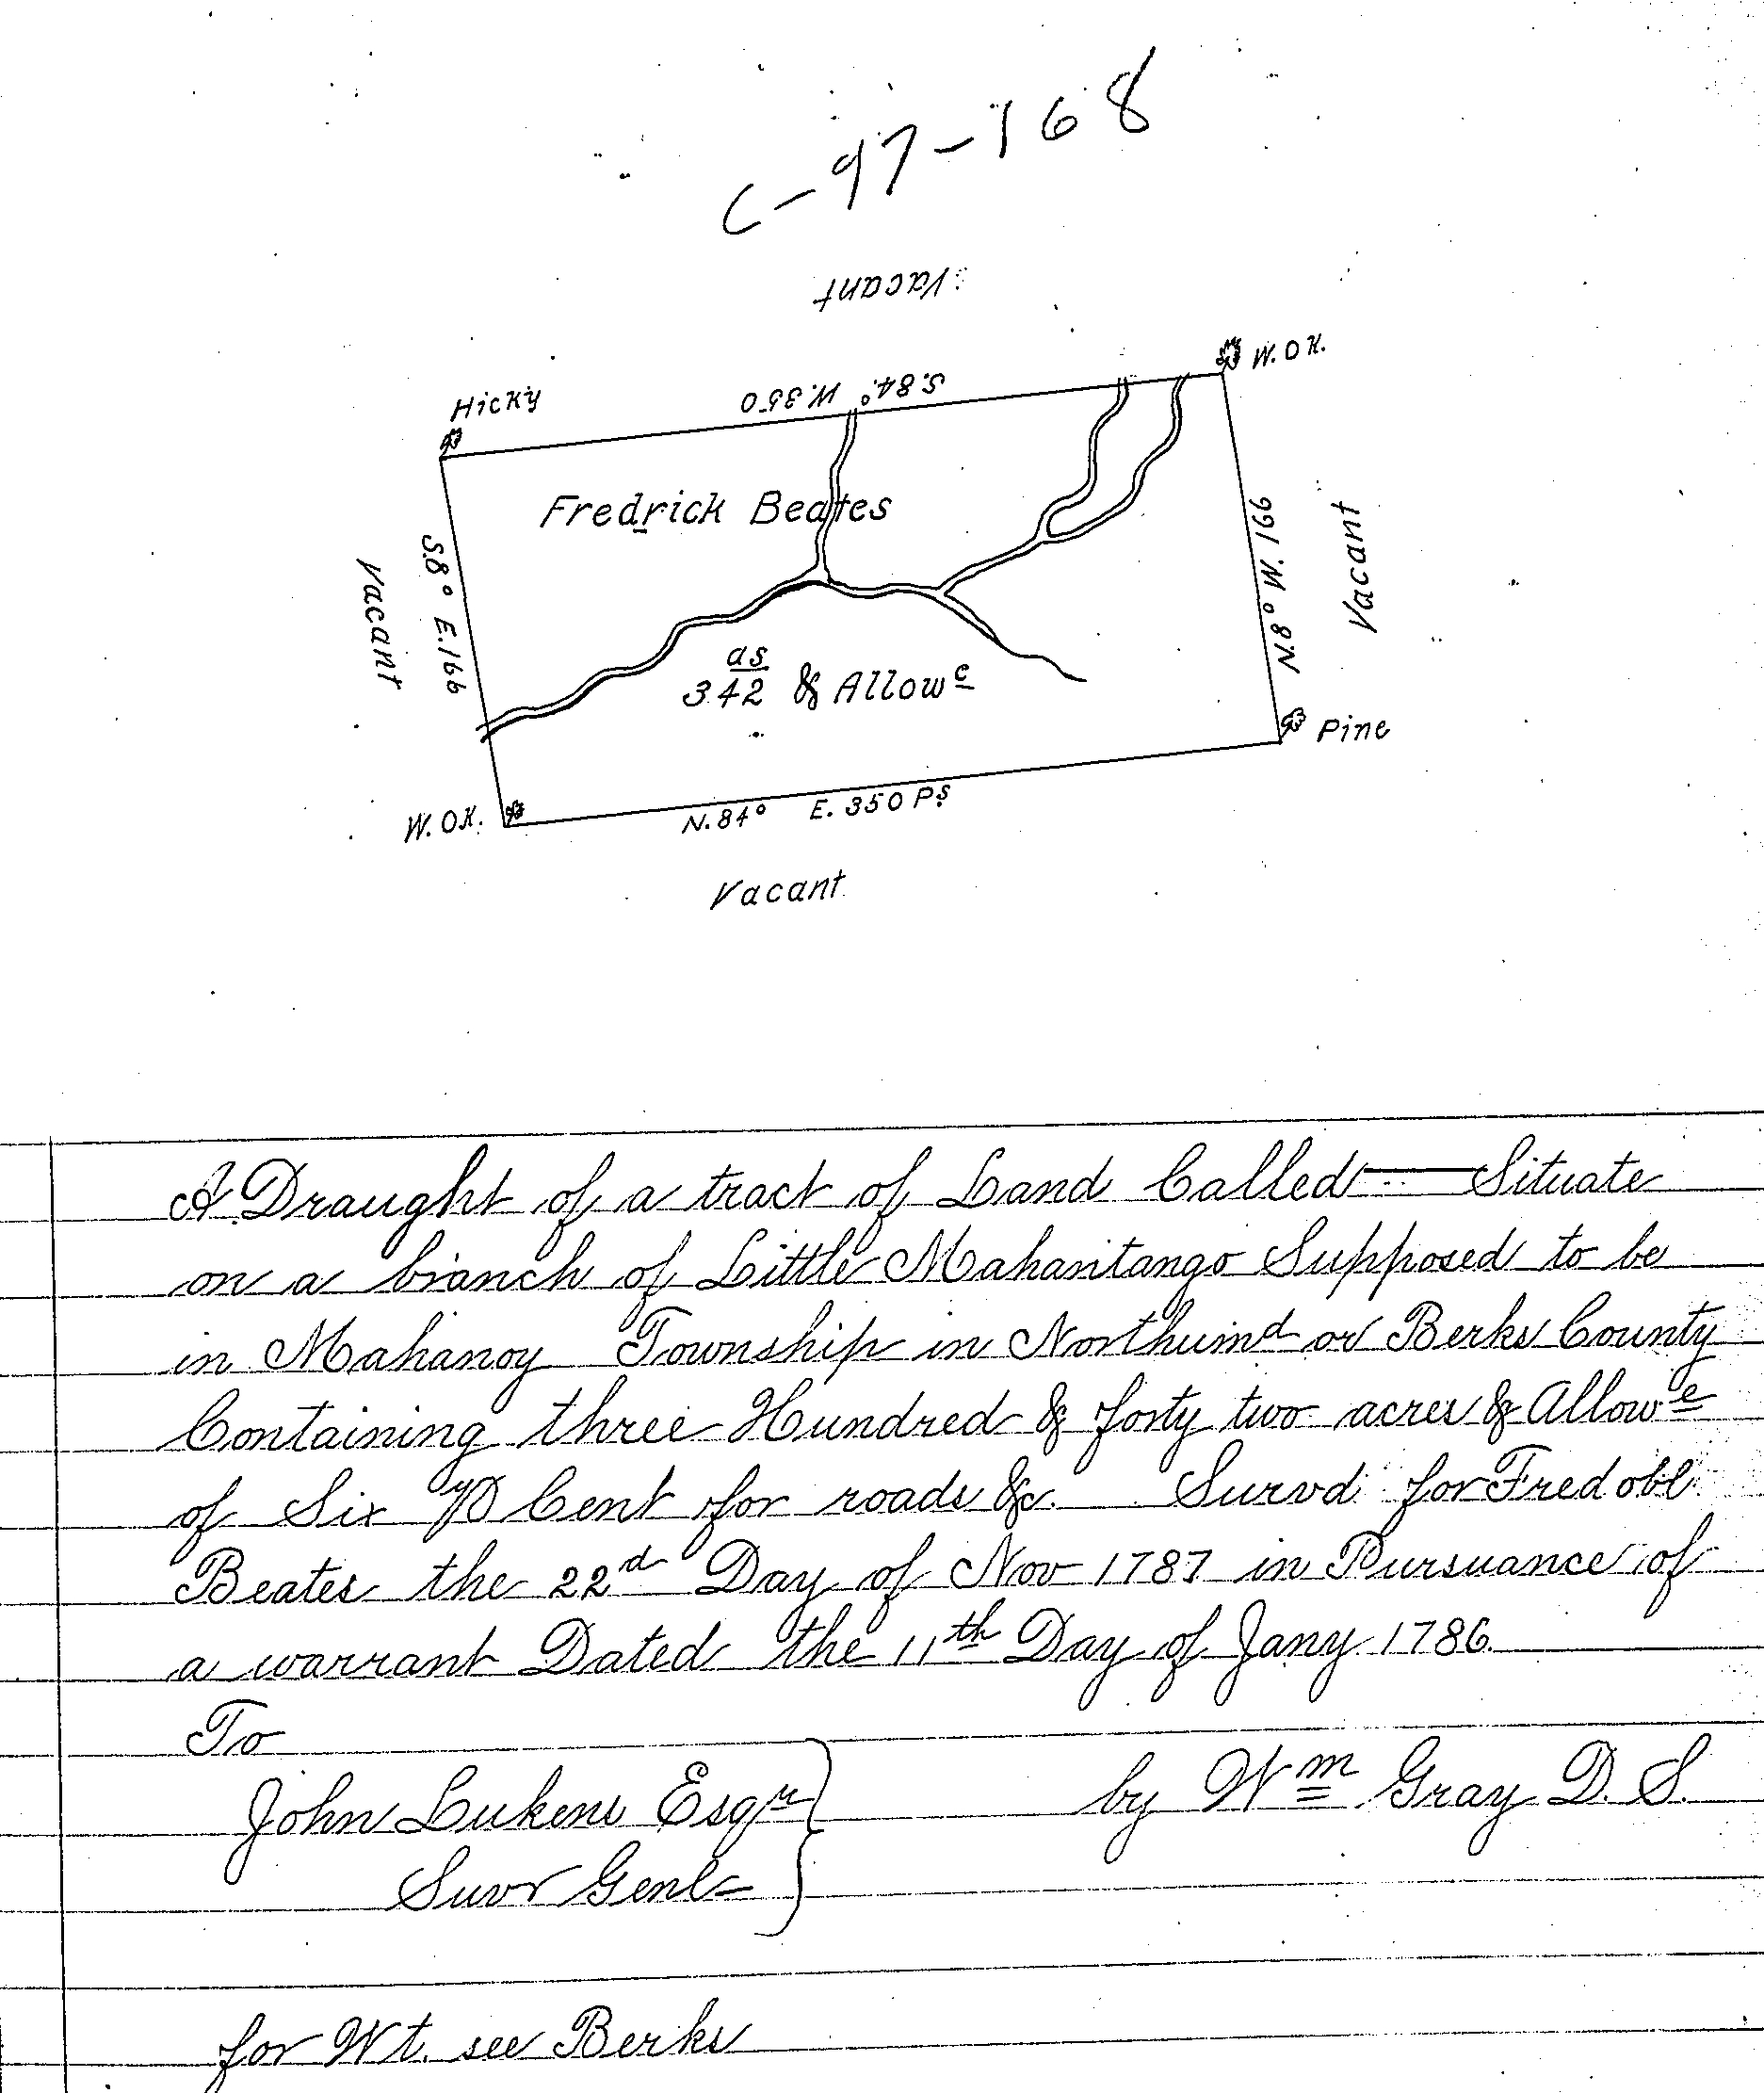 C-97-168
Vacant
W. OK.
Hicky
S. 84° W. 350
Fredrick Beates
S.8° E. 166
Vacant
N.8° W. 166
Vacant
as
342 & Allowe
Pine
W. OK.
N. 84° E. 350 Ps
Vacant
A Draught of a tract of Land Called — Situate
on a branch of Little Mahantango Supposed to be
in Mahanoy Township in Northumd or Berks County
Containing three Hundred & forty two acres & Allowe
of Six Cent for roads &c. Survd for Fred
Beates the 22d Day of Nov 1787 in Pursuance of
a warrant Dated the 11th Day of Jany 1786.
To
John Lukens Esqr
by Wm Gray D. S.
Survr Genl
for Wt. see Berks